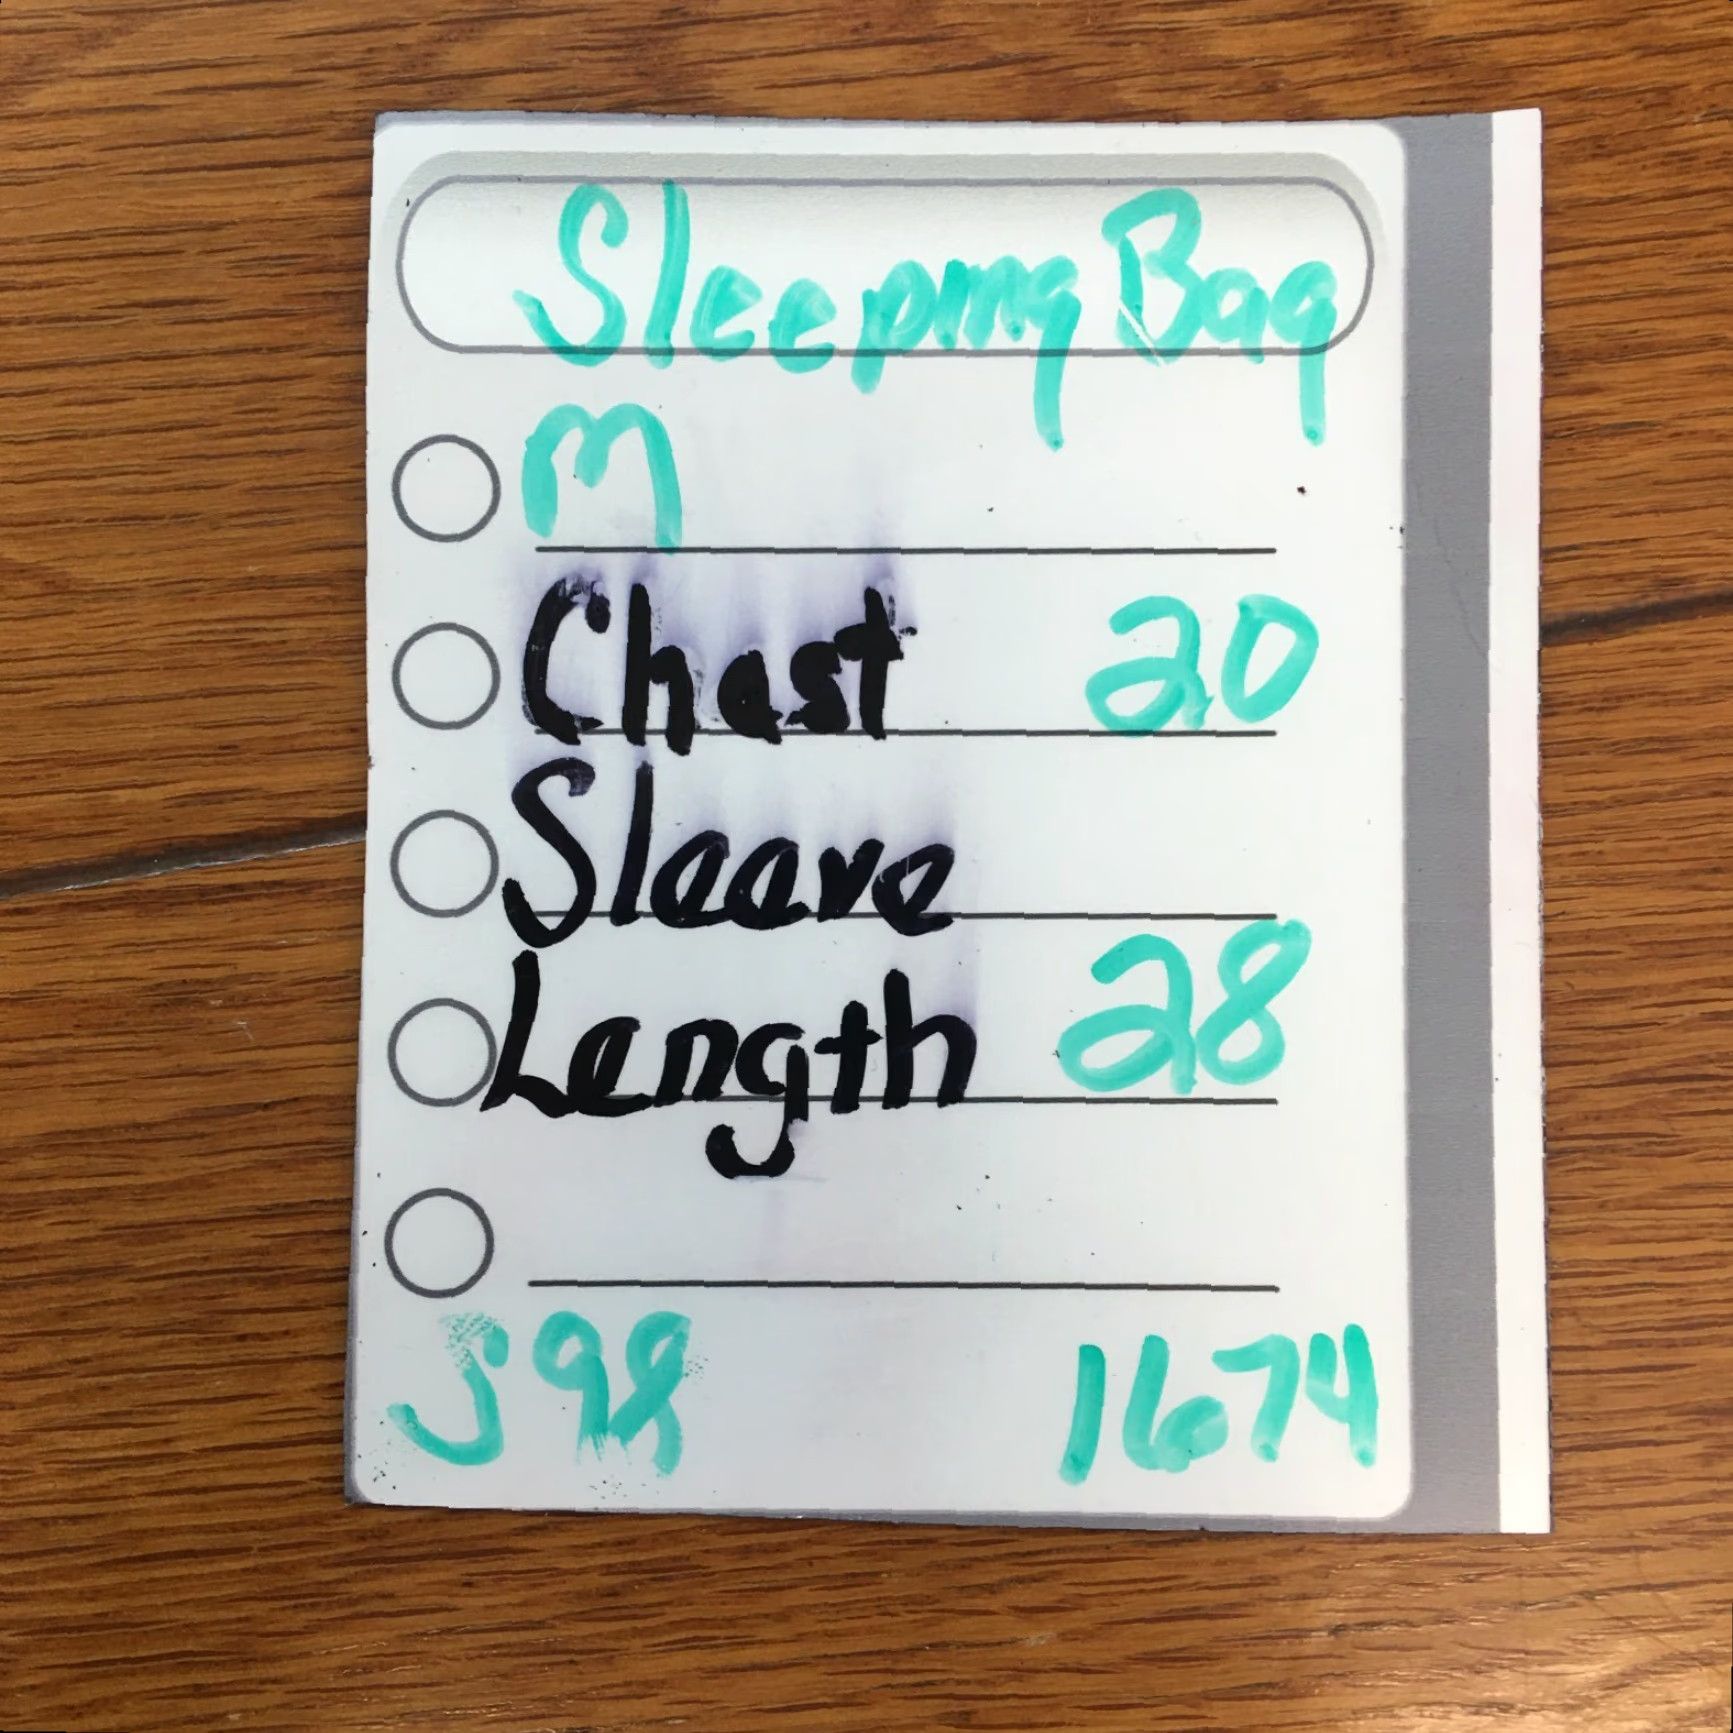 Sleeping Bag
M
Chest 20
Sleeve
Length 28
1674